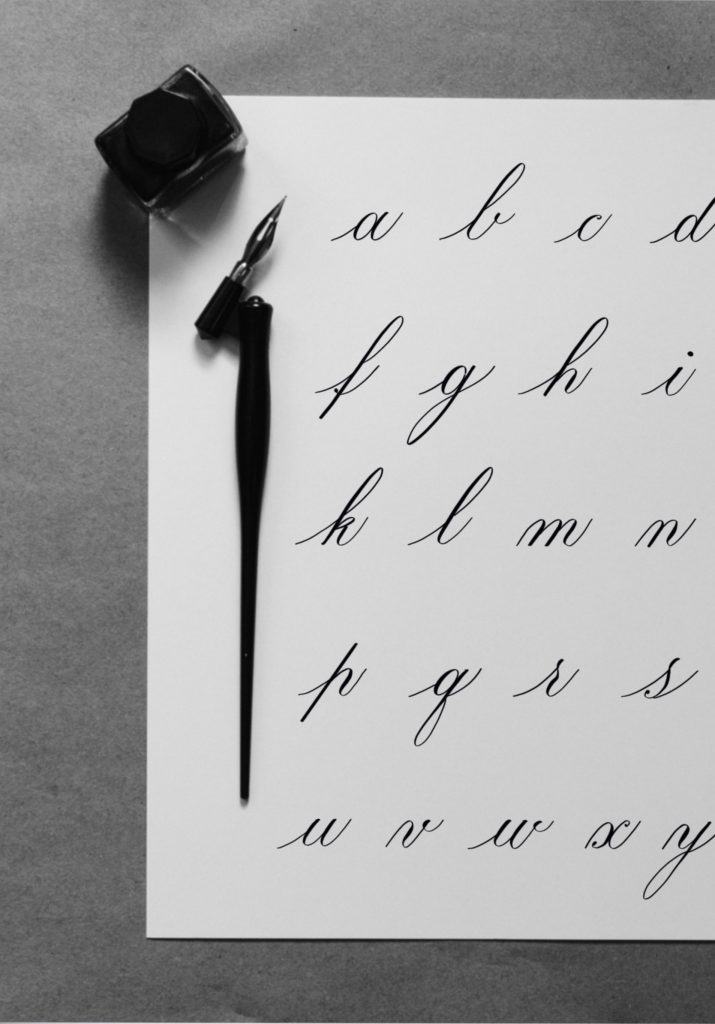 a b c d
f g h i
k l m n
p q r s
u v w x y